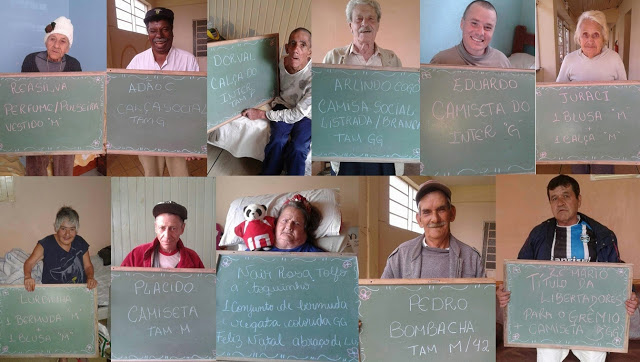 REASILVA
PERFUME/PULSEIRA
VESTIDO "M"
ADÃO C
CALÇA SOCIAL
TAM G
DORVAL
CALÇA DO
INTER
"G"
ARLINDO
CAMISA SOCIAL
LISTRADA/BRANCA
TAM GG
EDUARDO
CAMISETA DO
INTER "G"
JURACI
1 BLUSA "M"
1 CALÇA "M"
1 BERMUDA "M"
1 BLUSA "M"
PLACIDO
CAMISETA
TAM M
Nair Rosa
a "toquinho"
1 Conjunto de bermuda
e regata colorida GG
Feliz Natal abraço do Lu
PEDRO
BOMBACHA
TAM M/42
ZÉ MARIO
TITULO DA
LIBERTADORES
PARA O GRÊMIO
1 CAMISETA GG